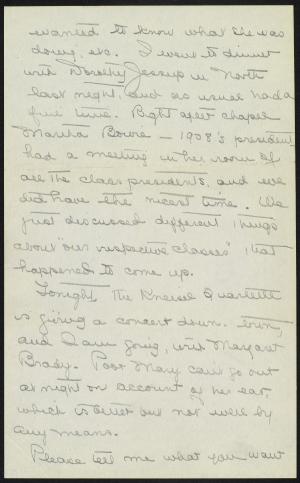 wanted to know what she was
doing, etc. I went to dinner
with Dorothy Jessup in North
last night, and as usual had a
fine time. Right after chapel
Martha Bowie - 1908's president
had a meeting in her room of
all the class presidents, and we
did have the nicest time. We
just discussed different things
about "our respective classes" that
happened to come up.
Tonight, The Kneisel Quartette
is giving a concert down town,
and I am going, with Margaret
Brady. Poor Mary can't go out
at night on account of her ear,
which is better but not well by
any means.
Please tell me what you want